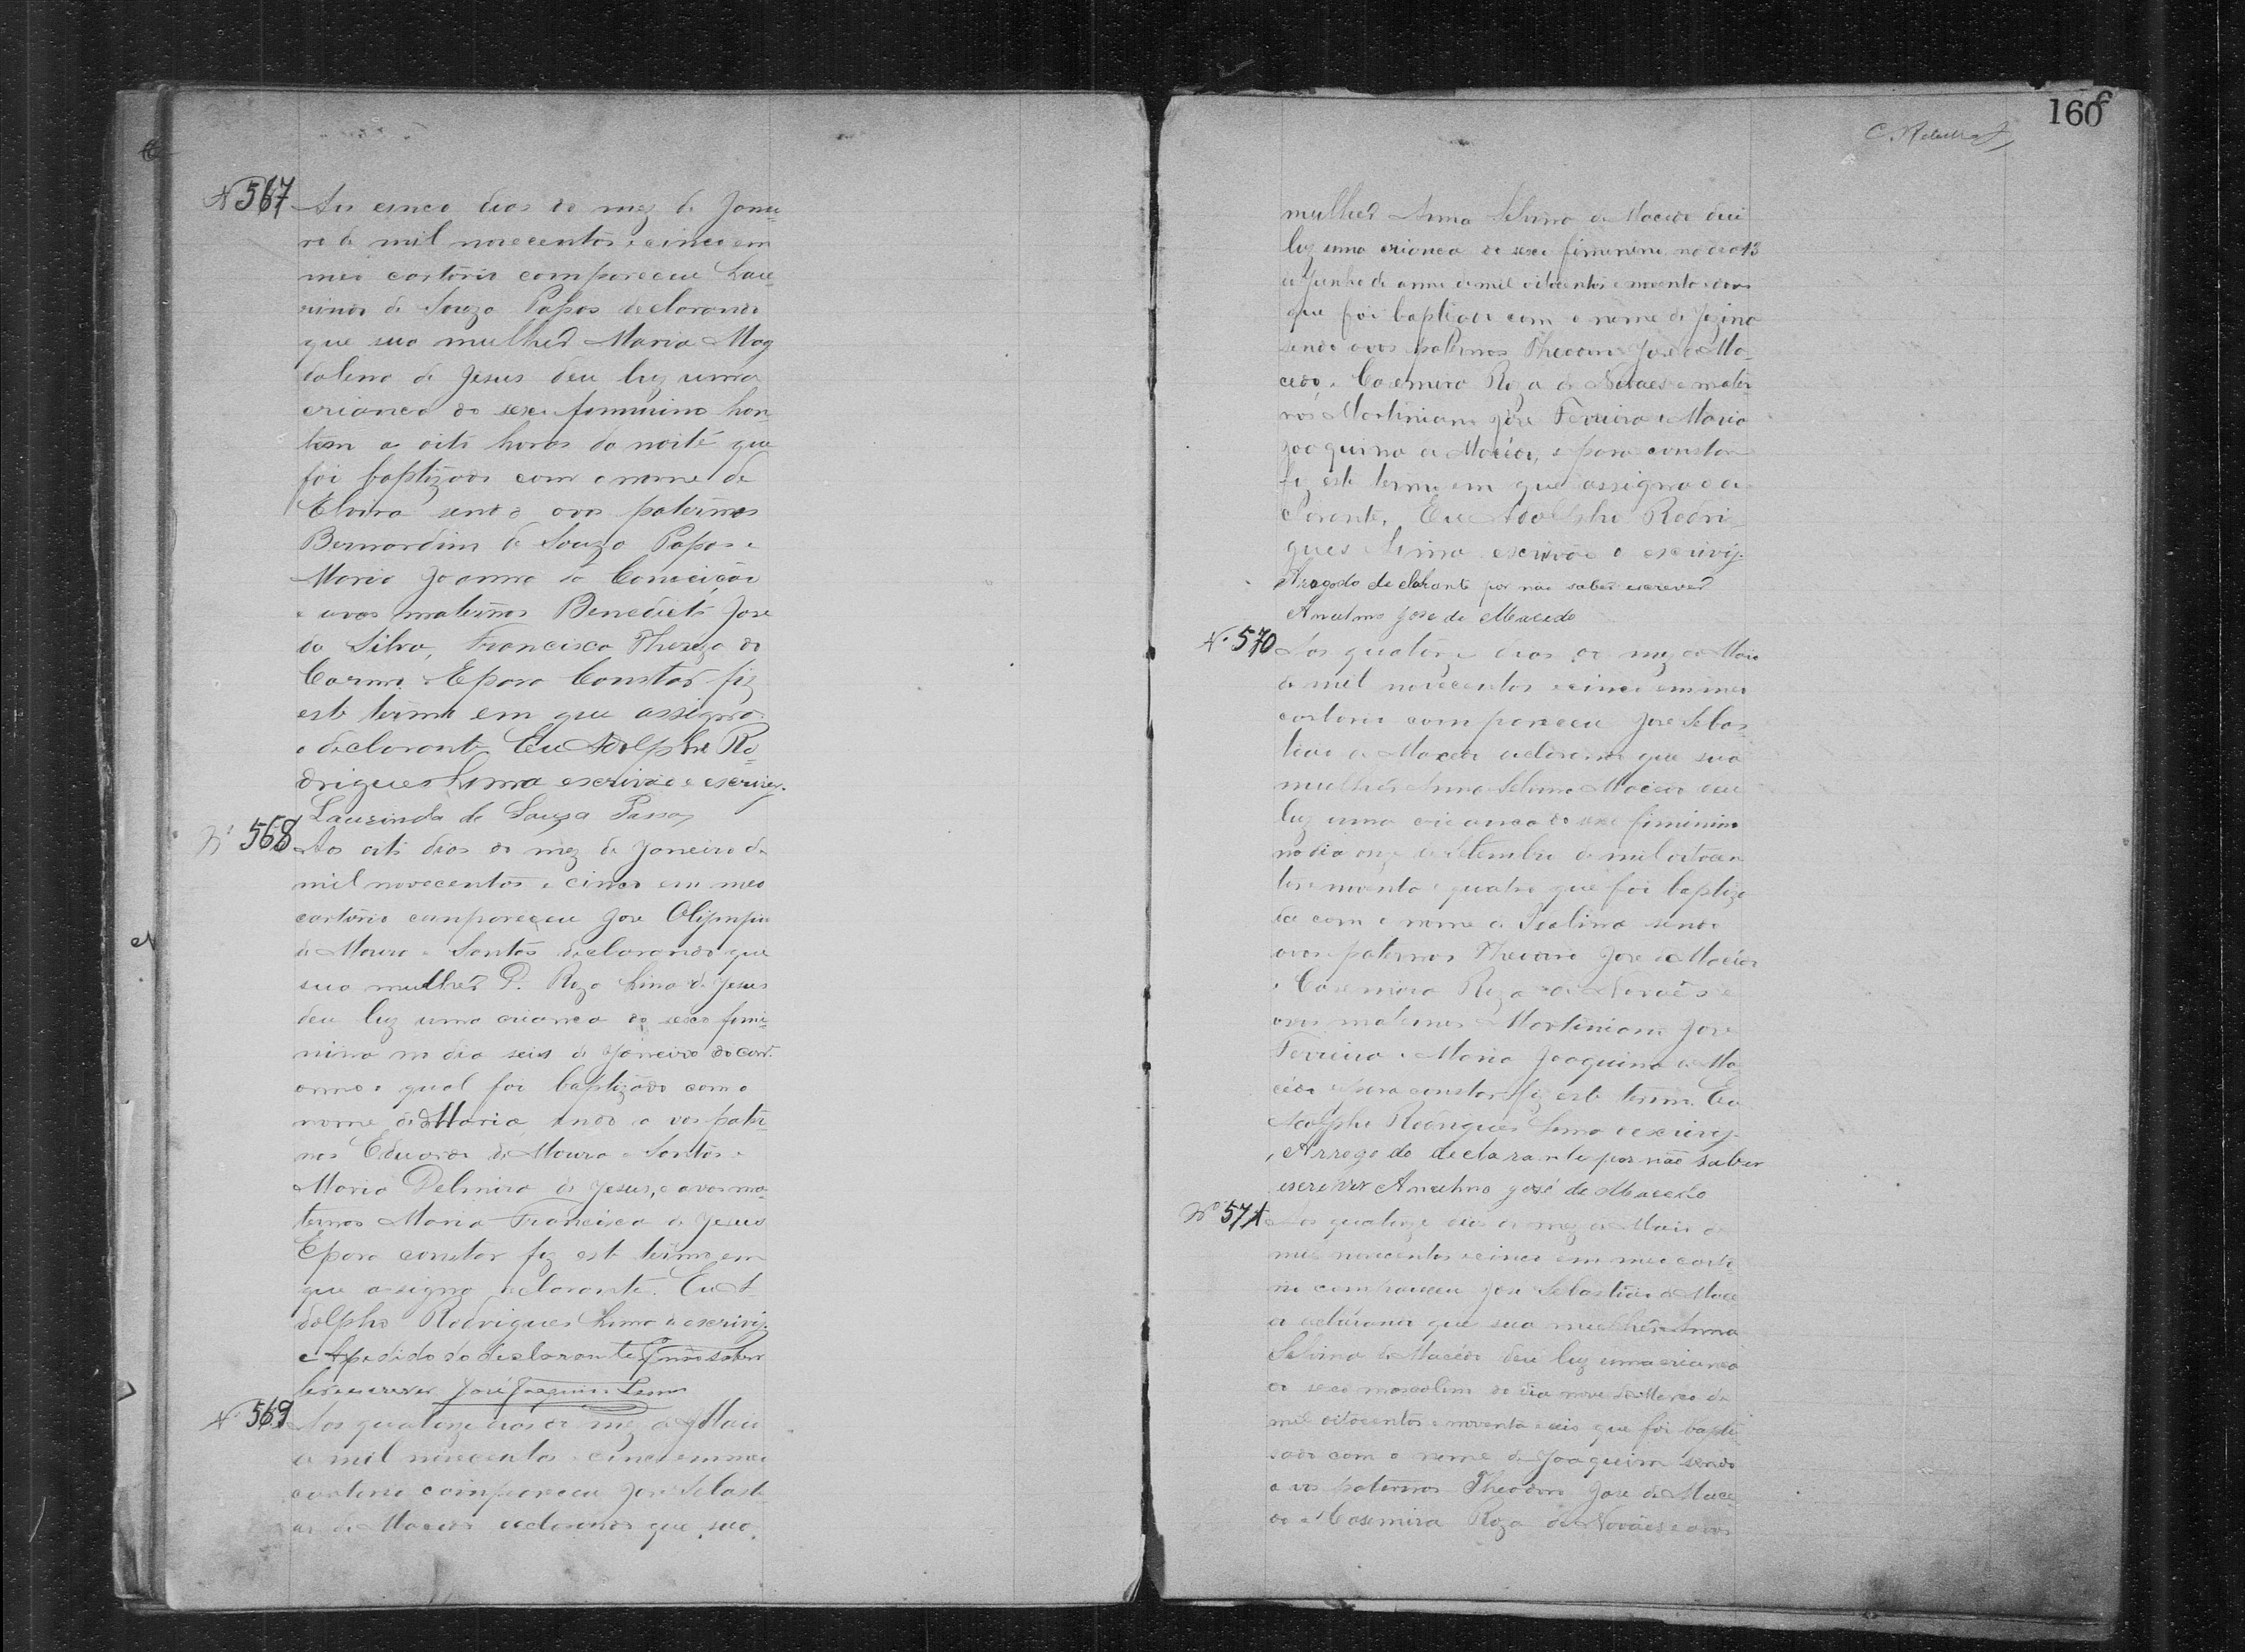 160
Nº 567 Aos cinco dias do mez de Janei-
ro de mil novecentos e cinco em
meo cartorio compareceu Lau-
rindo de Souza Passos declarando
que sua mulher Maria Mag
dalena de Jesus deu luz uma
crianca do sexo feminino hon
tem as oito horas da noite que
foi baptizada com o nome de
Elvira sendo avos paternos
Bernardino de Souza Passos e
Maria Joanna da Conceição
e avos maternos Benedicto Jose
da Silva, Francisca Thereza do
Carmo. E para Constar fiz
este termo em que assigna
o declarante. Eu Adolpho Ro-
drigues Lima escrivão o escrivy.
Laurindo de Souza Passos
Nº 568 Aos oito dias do mez de Janeiro de
mil novecentos e cinco em meo
cartorio compareceu Jose Olympio
de Moura e Santos declarando que
sua mulher D. Roza Lina de Jesus
deu luz uma crianca do sexo femi-
nino no dia seis de Janeiro do cort.
anno o qual foi baptizado com o
nome de Maria sendo a vos pater-
nos Eduardo de Moura e Santos e
Maria Delmira de Jesus, e avos ma-
ternos Maria Francisca de Jesus
E para constar fiz este termo em
que assigna declarante. Eu A-
dolpho Rodrigues Lima o escrivy.
A pedido do declarante não saber
ler e escrever José Joaquim
Nº 569 Aos quatorze dias do mez de Maio
de mil novecentos e cinco em meo
cartorio compareceu Jose Sebasti-
ão de Macedo declarando que sua
mulher Anna Selvina de Macedo deu
luz uma crianca do sexo feminino no dia 13
de Junho do anno de mil oitocentos e noventa e dous
que foi baptizada com o nome de Jozina
sendo avos paternos Theodoro Jose de Ma-
cedo e Casemira Roza de Novaes e mater
nos Martiniano Jose Ferreira e Maria
Joaquina de Macedo, e para constar
fiz este termo em que assigna o de
clarante. Eu Adolpho Rodri
gues Lima escrivão o escrivy.
Arrogo do declarante por não saber escrever
Anselmo Jose de Macedo
Nº 570 Aos quatorze dias do mez de Maio
de mil novecentos e cinco em meo
cartorio compareceu Jose Sebas
tião de Macedo declarando que sua
mulher Anna Selvina Macedo deu
luz uma crianca do sexo feminino
no dia onze de Setembro de mil oitocen
tos e noventa e quatro que foi baptiza
da com o nome de Idalina sendo
avos paternos Theodoro Jose de Macedo
e Casemira Roza de Novaes e
avos maternos Martiniano Jose
Ferreira e Maria Joaquina de Ma
cedo e para constar fiz este termo. Eu
Adolpho Rodrigues Lima o escrivy.
Arrogo do declarante por não saber
escrever Anselmo José de Macedo
Nº 571 Aos quatorze dias do mez de Maio de
mil novecentos e cinco em meo carto-
rio compareceu Jose Sebastião de Mace
do declarando que sua mulher Anna
Selvina de Macedo deu luz uma crianca
do sexo mascolino no dia nove de Marco de
mil oitocentos e noventa e seis que foi bapti
sado com o nome de Joaquim sendo
a vos paternos Theodoro Jose de Mace
do e Casemira Roza de Novaes e avos